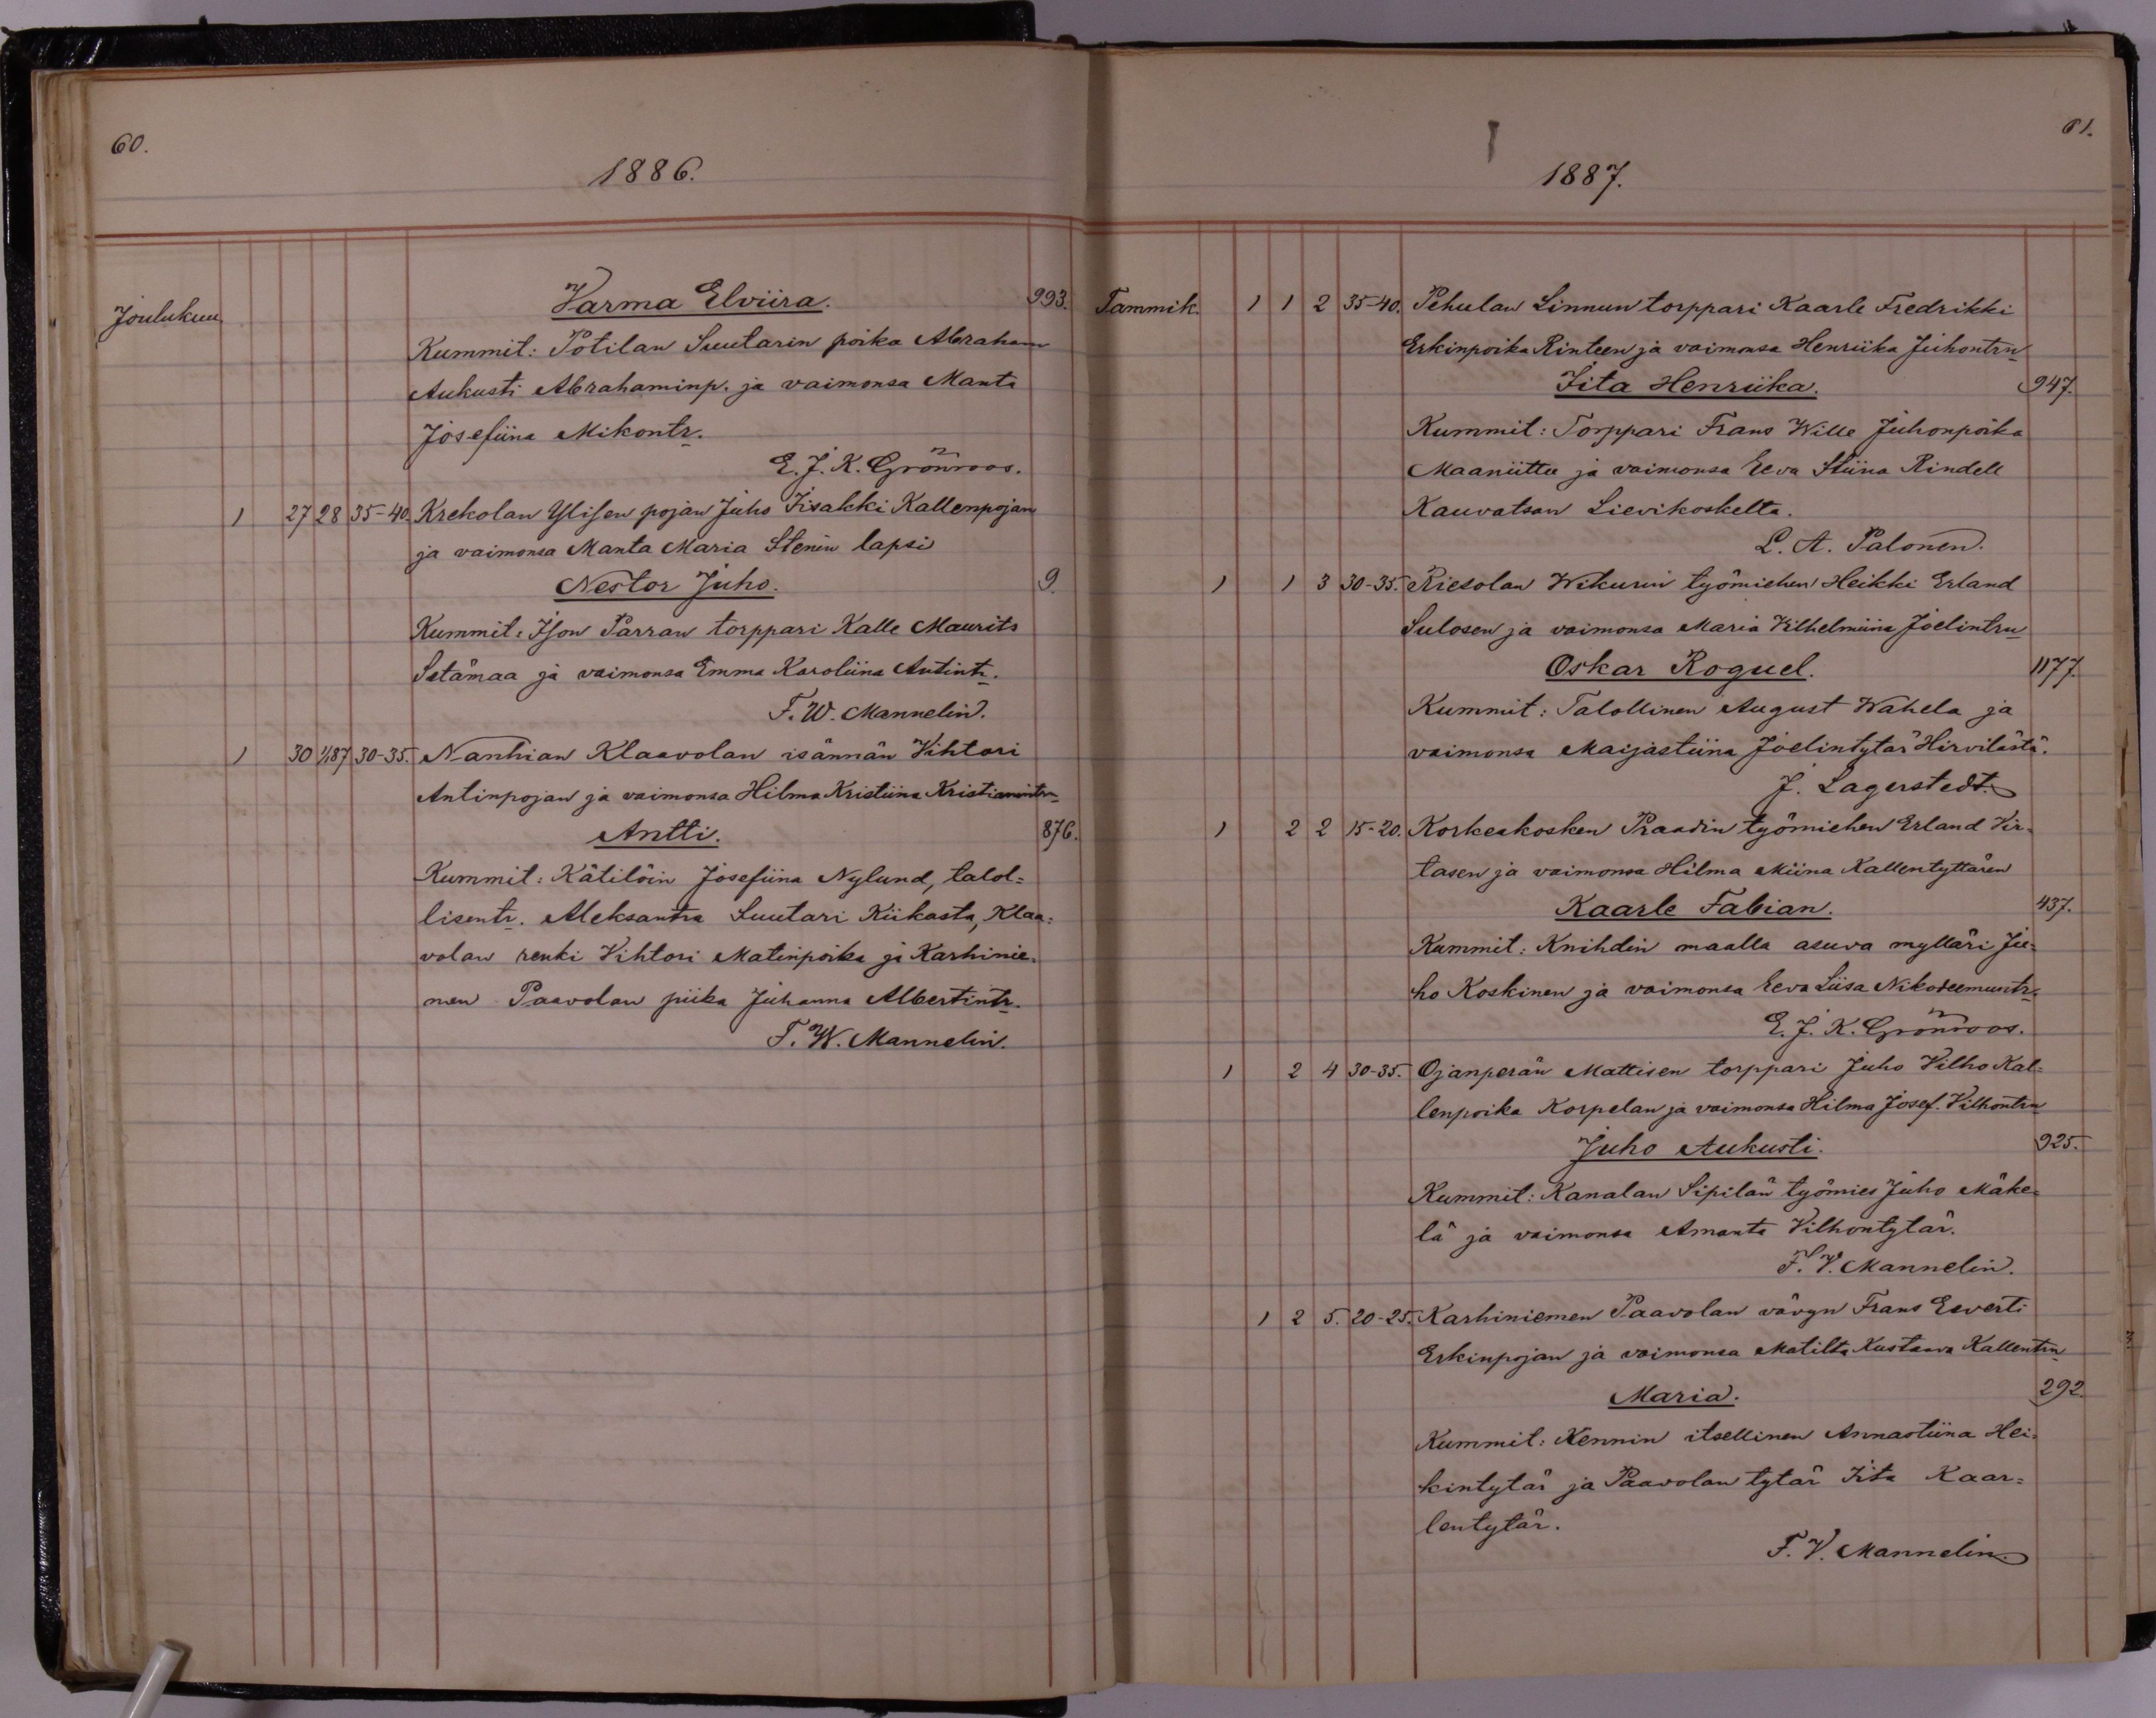 60.
1886.
Joulukuu
Varma Elviira. 993.
Kummit: Potilan Suutarin poika Abraham
Aukusti Abrahaminp. ja vaimonsa Manta
Josefiina Mikontr.
E. J. K. Grönroos.
1 27 28 35-40. Krekolan Ylisen pojan Juho Iisakki Kallenpojan
ja vaimonsa Manta Maria Stenin lapsi
Nestor Juho. 9.
Kummit: Ison Parran torppari Kalle Maurits
Satamaa ja vaimonsa Emma Karoliina Antintr.
F. W. Mannelin.
1 30 1/1 87 30-35. Nanhian Klaavolan isännän Vihtori
Antinpojan ja vaimonsa Hilma Kristiina Kristianintrn
Antti. 876.
Kummit: Kätilöin Josefiina Nylund, talol=
lisentr. Aleksantra Suutari Kiikasta, Klaa=
volan renki Vihtori Matinpoika ja Karhinie=
men Paavolan piika Juhanna Albertintr.
F. W. Mannelin.
61.
1887.
Tammik. 1 1 2 35-40. Pehulan Linnun torppari Kaarle Fredrikki
Erkinpoika Rinteen ja vaimonsa Henriika Juhontrn
Iita Henriika. 947.
Kummit: Torppari Frans Wille Juhonpoika
Maaniittu ja vaimonsa Eeva Stiina Rindell
Kauvatsan Lievikoskelta.
L. A. Palonen.
1 1 3 30-35. Riesolan Wikurin työmiehen Heikki Erland
Sulosen ja vaimonsa Maria Vilhelmiina Joelintrn
Oskar Roguel. 1177.
Kummit: Talollinen August Wahela ja
vaimonsa Maijastiina Joelintytär Hirvilästä.
J. Lagerstedt.
1 2 2 15-20. Korkeakosken Praadin työmiehen Erland Vir=
tasen ja vaimonsa Hilma Miina Kallentyttären
Kaarle Fabian. 437.
Kummit: Knihdin maalla asuva mylläri Ju=
ho Koskinen ja vaimonsa Eeva Liisa Nikodeemuntr.
E. J. K. Grönroos.
1 2 4 30-35. Ojanperän Mattisen torppari Juho Vilho Kal=
lenpoika Korpelan ja vaimonsa Hilma Josef. Vilhontrn
Juho Aukusti. 925.
Kummit: Kanalan Sipilän työmies Juho Mäke=
lä ja vaimonsa Amanta Vilhontytär.
F. V. Mannelin.
1 2 5. 20-25. Karhiniemen Paavolan vävyn Frans Eeverti
Erkinpojan ja vaimonsa Matilta Kustaava Kallentrn
Maria. 292.
Kummit: Kennin itsellinen Annastiina Hei=
kintytär ja Paavolan tytär Iita Kaar=
lentytär.
F. V. Mannelin.